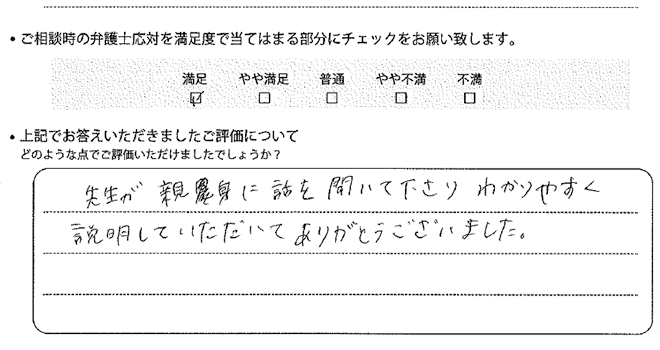 • ご相談時の弁護士応対を満足度で当てはまる部分にチェックをお願い致します。
満足 やや満足 普通 やや不満 不満
☑ □ □ □ □
• 上記でお答えいただきましたご評価について
どのような点でご評価いただけましたでしょうか?
先生が 親農身に 話を 聞いて下さり わかりやすく
説明していただいて ありがとうございました。